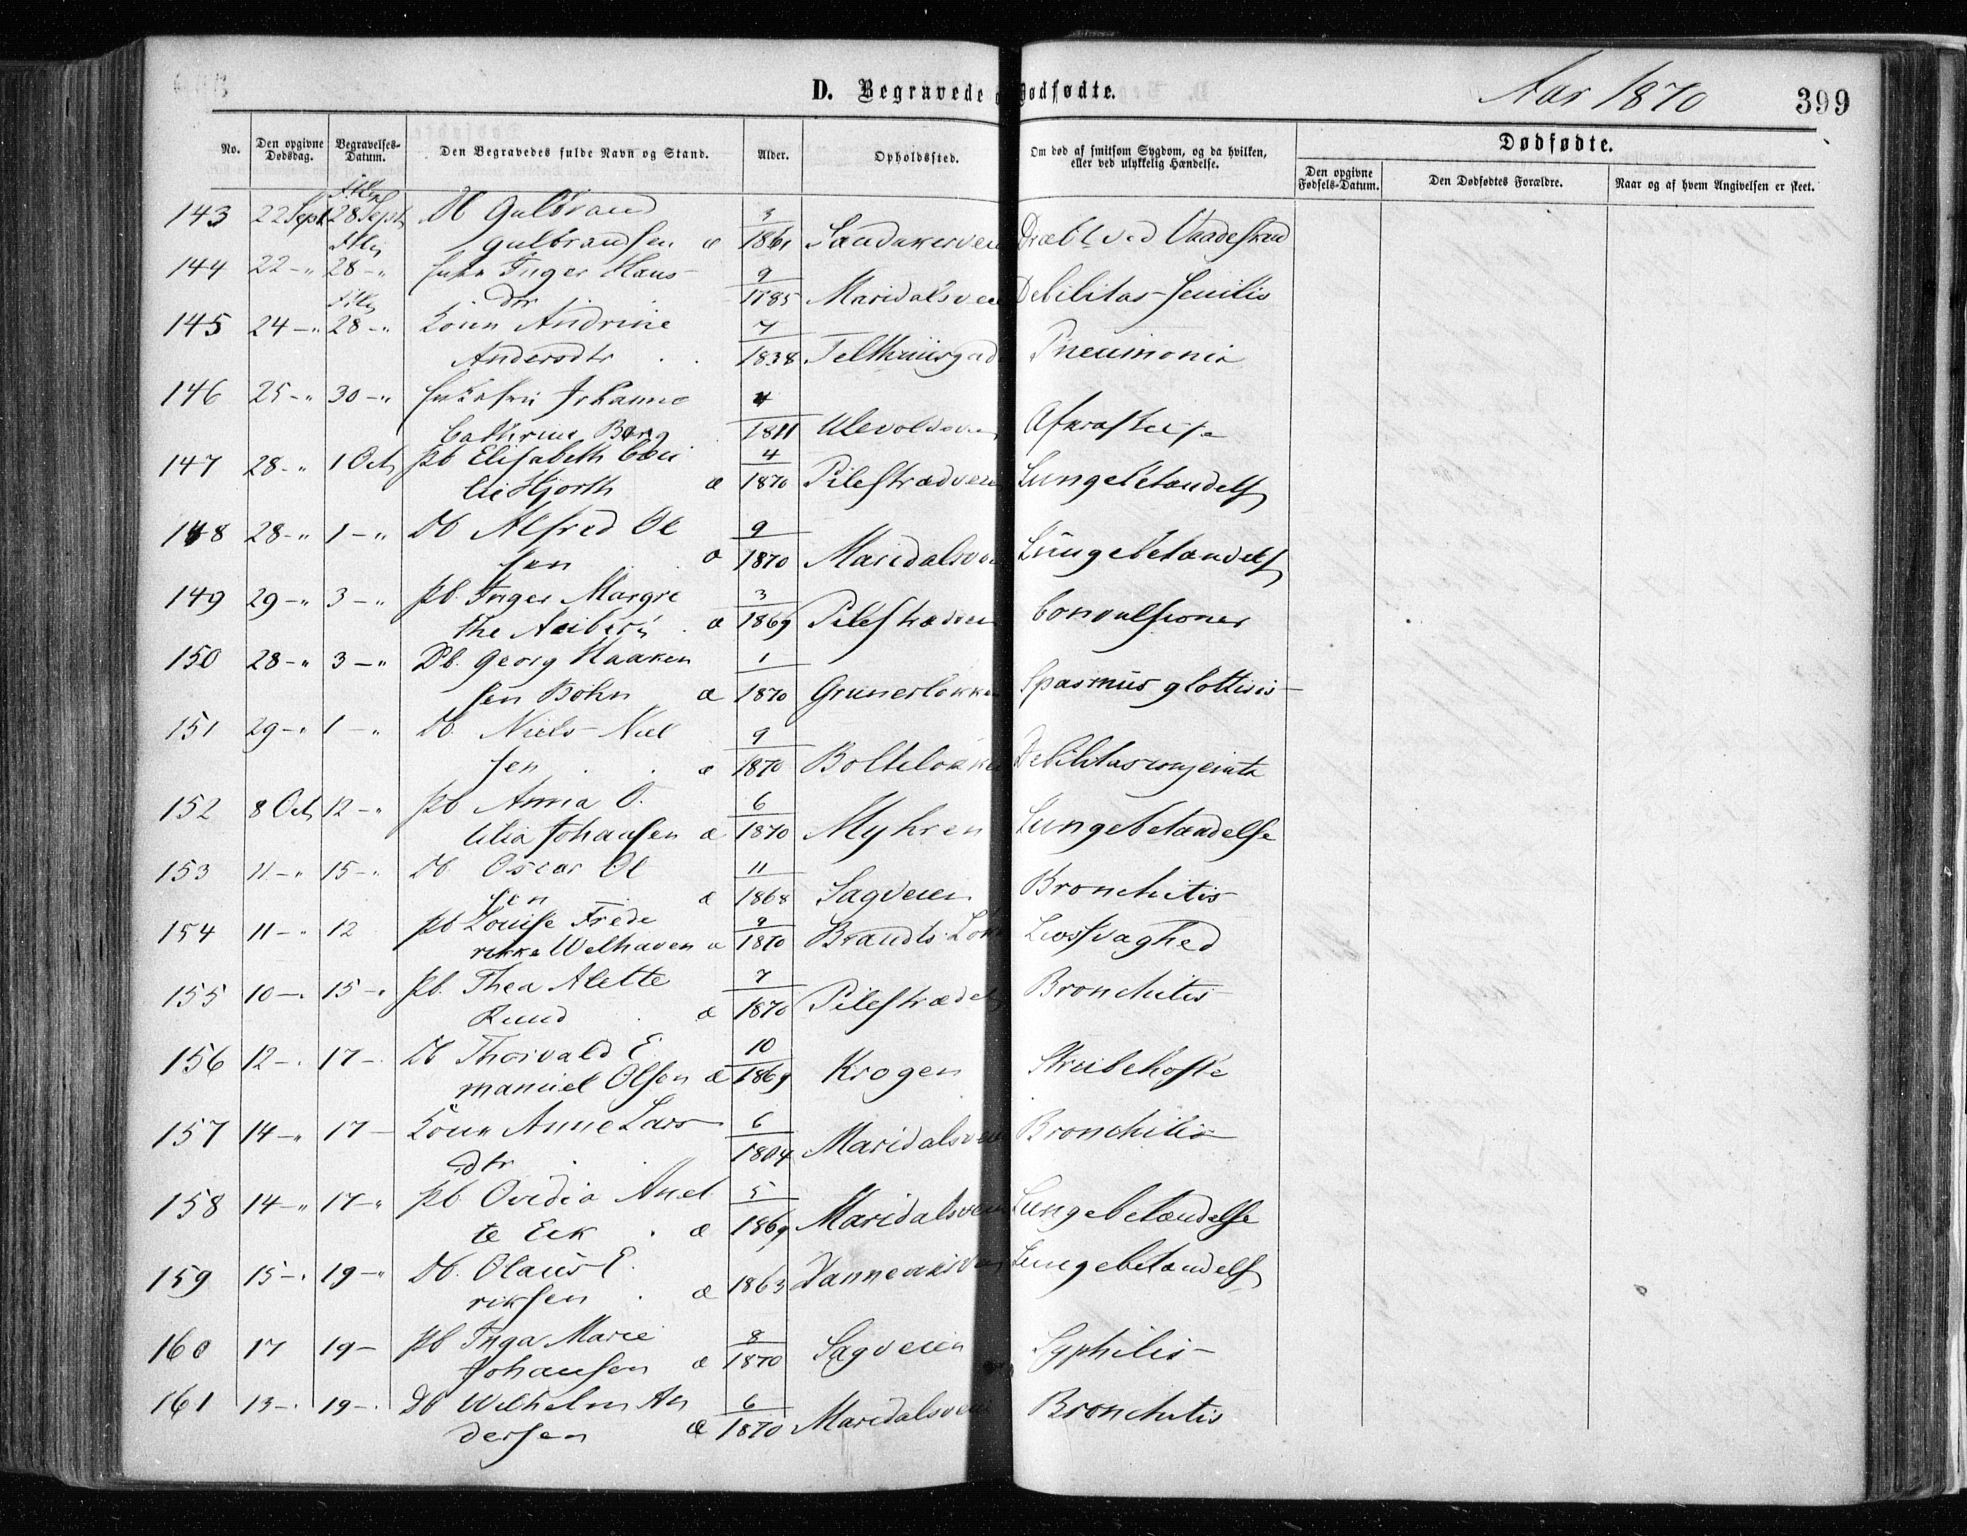 D. Begravede og Dødfødte.
Aar 1870
399
No.
Den opgivne Dødsdag.
Begravelses-Datum.
Den Begravedes fulde Navn og Stand.
Alder.
Opholdssted.
Om død af smitsom Sygdom, og da hvilken, eller ved ulykkelig Hændelse.
Dødfødte.
Den opgivne Fødsels-Datum.
Den Dødfødtes Forældre.
Naar og af hvem Angivelsen er skeet.
143 22 Sept 28 Sept Db Gulbrand
Gulbrandsen æ 3/1861 Sandakerveien Dræbt ved Vaadeskud
144 22 -„ 28 -„ Inger Hans-
dtr 9/1785 Maridalsveien Debilitas senilis
145 24 -„ 28 -„ Kone Andrine
Andersdtr 7/1838 Telthuusgaden Pneumonia
146 25 -„ 30 -„ Johanne
Cathrine Berg 4/1811 Ulevoldsveien Afkræftelse
147 28 -„ 1 Oct Pb Elisabeth Ceci
lie Hjorth æ 4/1870 Pilestrædveien Lungebetændelse
148 28 -„ 1 -„ Db Alfred Ol
sen æ 9/1870 Maridalsveien Lungebetændelse
149 29 -„ 3 -„ Pb. Inger Margre
the æ 3/1869 Pilestrædveien Convulsioner
150 28 -„ 3 -„ Db. Georg Haaken
sen Bøhn æ 1/1870 Grunerløkken Spasmus glottidis
151 29 -„ 1 -„ Db Niels Niel
sen æ 9/1870 Bolteløkken Debilitas congenita
152 8 Oct 12 -„ Pb Anna O.
tilia Johansen æ 6/1870 Myhren Lungebetændelse
153 11 -„ 15 -„ Db Oscar Ol
sen æ 11/1868 Sagveien Bronchitis
154 11 -„ 12 Pb Louise Frede
rikke Welhaven æ 9/1870 Brandts Løkke Livssvaghed
155 10 -„ 15 -„ Pb. Thea Alette
Ruud æ 7/1870 Pilestrædet Bronchitis
156 12 -„ 17 -„ Db Thorvald E
manuel Olsen æ 10/1869 Krogen Strubehoste
157 14 -„ 17 - Kone Anne Lars
dtr 6/1804 Maridalsveien Bronchitis
158 14 -„ 17 -„ Pb. Ovidia Anet
te Eek æ 5/1869 Maridalsveien Lungebetændelse
159 15 -„ 19 -„ Db. Olaus E.
riksen æ 1863 Lungebetændelse
160 17 19 - Pb Inga Marie
Johansen æ 8/1870 Sagveien Syphilis
161 13 -„ 19 -„ Db Wilhelm An
dersen æ 6/1870 Maridalsveien Bronchitis